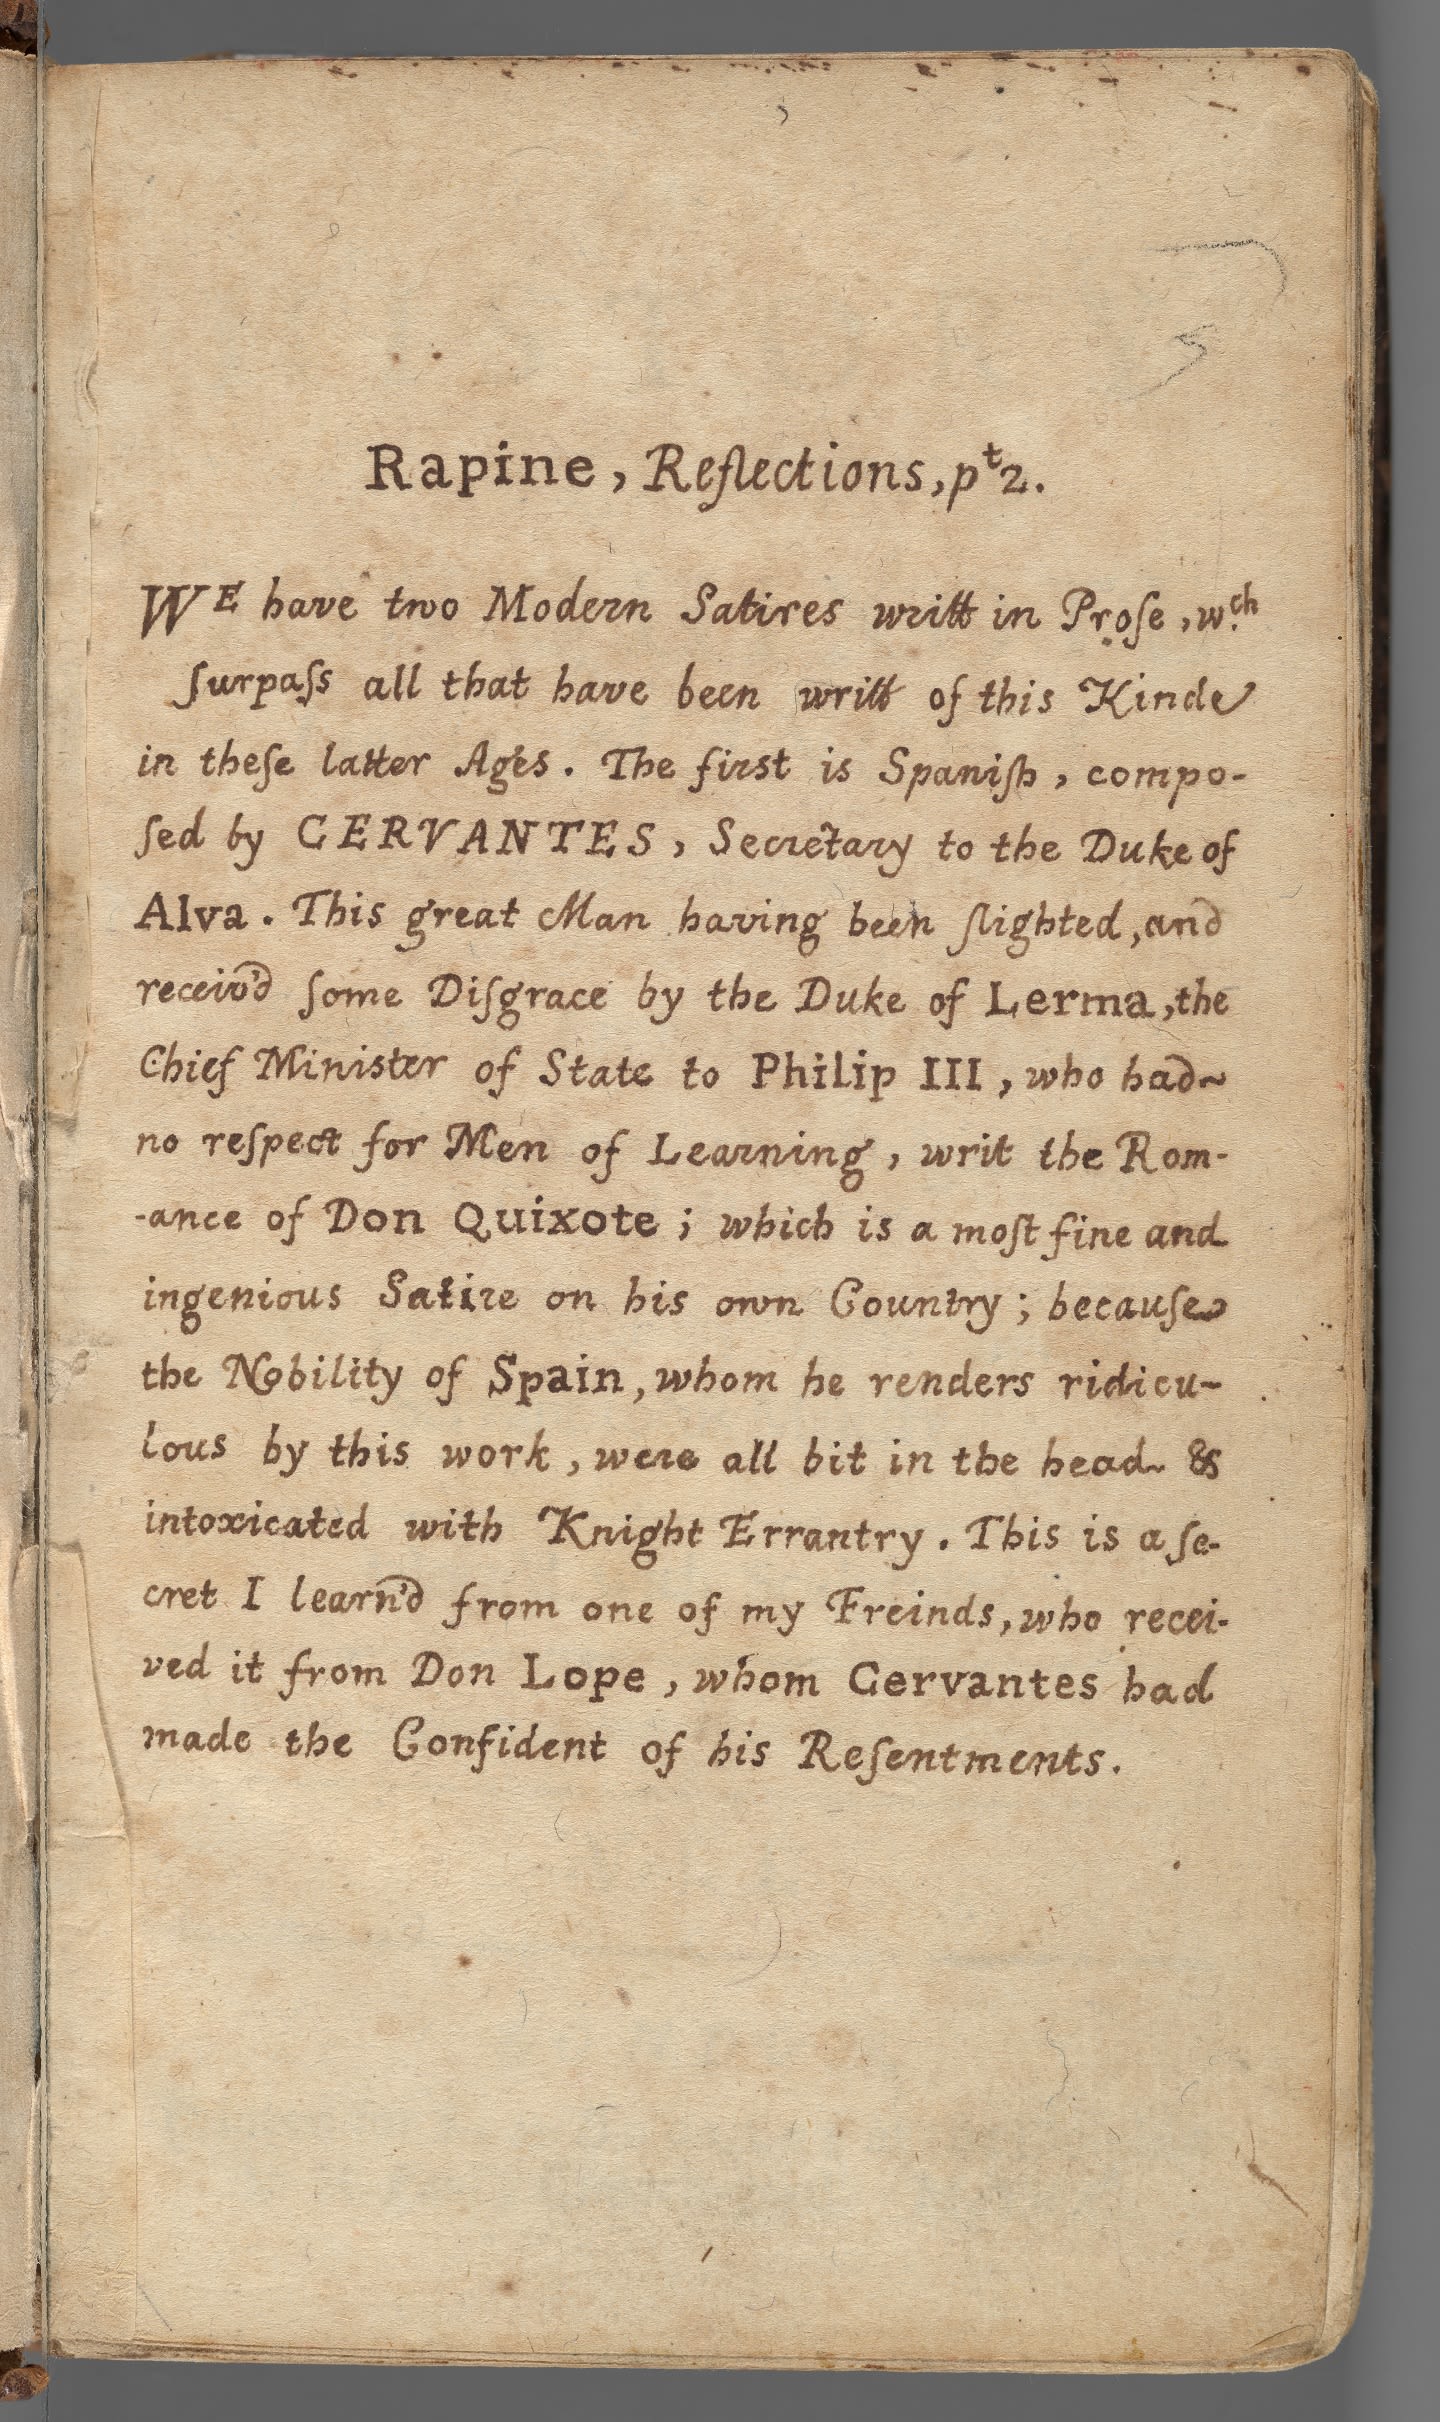 Rapine, Reflections, pt 2.
WE have two Modern Satires writt in Proſe, wch
ſurpaſs all that have been writt of this Kinde
in theſe latter Ages. The first is Spaniſh, compo-
ſed by CERVANTES, Secretary to the Duke of
Alva. This great Man having been ſlighted, and
receiv'd ſome Diſgrace by the Duke of Lerma, the
Chief Minister of State to Philip III, who had
no reſpect for Men of Learning, writ the Rom-
-ance of Don Quixote; which is a moſt fine and
ingenious Satire on his own Country; becauſe
the Nobility of Spain, whom he renders ridicu-
lous by this work, were all bit in the head &
intoxicated with Knight Errantry. This is a ſe-
cret I learn'd from one of my Freinds, who recei-
ved it from Don Lope, whom Cervantes had
made the Confident of his Reſentments.